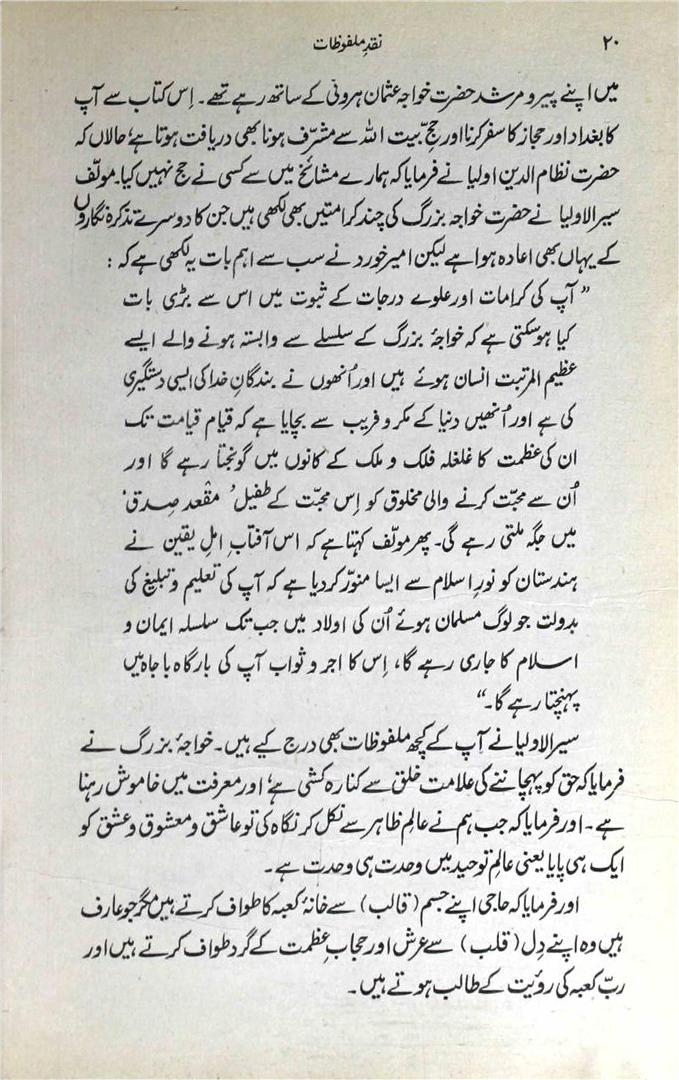 ۲۰
نقدِ ملفوظات
میں اپنے پیر و مرشد حضرت خواجہ عثمان ہرونی کے ساتھ رہے تھے۔ اِس کتاب سے آپ
کا بغداد اور حجاز کا سفر کرنا اور حجِ بیت اللہ سے مشرّف ہونا بھی دریافت ہوتا ہے، حالاں کہ
حضرت نظام الدین اولیا نے فرمایا کہ ہمارے مشائخ میں سے کسی نے حج نہیں کیا۔ مولّف
سیر الاولیا نے حضرت خواجہ بزرگ کی چند کرامتیں بھی لکھی ہیں جن کا دوسرے تذکرہ نگاروں
کے یہاں بھی اعادہ ہوا ہے لیکن امیر خورد نے سب سے اہم بات یہ لکھی ہے کہ :
”آپ کی کرامات اور علوے درجات کے ثبوت میں اس سے بڑی بات
کیا ہوسکتی ہے کہ خواجۂ بزرگ کے سلسلے سے وابستہ ہونے والے ایسے
عظیم المرتبت انسان ہوئے ہیں اور اُنھوں نے بندگانِ خدا کی ایسی دستگیری
کی ہے اور اُنھیں دنیا کے مکر و فریب سے بچایا ہے کہ قیام قیامت تک
ان کی عظمت کا غلغلہ فلک و ملک کے کانوں میں گونجتا رہے گا اور
اُن سے محبّت کرنے والی مخلوق کو اِس محبّت کے طفیل ’مقعد صِدق‘
میں جگہ ملتی رہے گی۔ پھر مولّف کہتا ہے کہ اس آفتابِ اہلِ یقین نے
ہندستان کو نورِ اسلام سے ایسا منوّر کردیا ہے کہ آپ کی تعلیم و تبلیغ کی
بدولت جو لوگ مسلمان ہوئے اُن کی اولاد میں جب تک سلسلہ ایمان و
اسلام کا جاری رہے گا، اِس کا اجر و ثواب آپ کی بارگاہ باجاہ میں
پہنچتا رہے گا۔“
سیر الاولیا نے آپ کے کچھ ملفوظات بھی درج کیے ہیں۔ خواجۂ بزرگ نے
فرمایا کہ حق کو پہچاننے کی علامت خلق سے کنارہ کشی ہے، اور معرفت میں خاموش رہنا
ہے۔ اور فرمایا کہ جب ہم نے عالمِ ظاہر سے نکل کر نگاہ کی تو عاشق و معشوق و عشق کو
ایک ہی پایا یعنی عالمِ توحید میں وحدت ہی وحدت ہے۔
اور فرمایا کہ حاجی اپنے جسم (قالب) سے خانۂ کعبہ کا طواف کرتے ہیں مگر جو عارف
ہیں وہ اپنے دِل (قلب) سے عرش اور حجابِ عظمت کے گرد طواف کرتے ہیں اور
ربِّ کعبہ کی روئیت کے طالب ہوتے ہیں۔